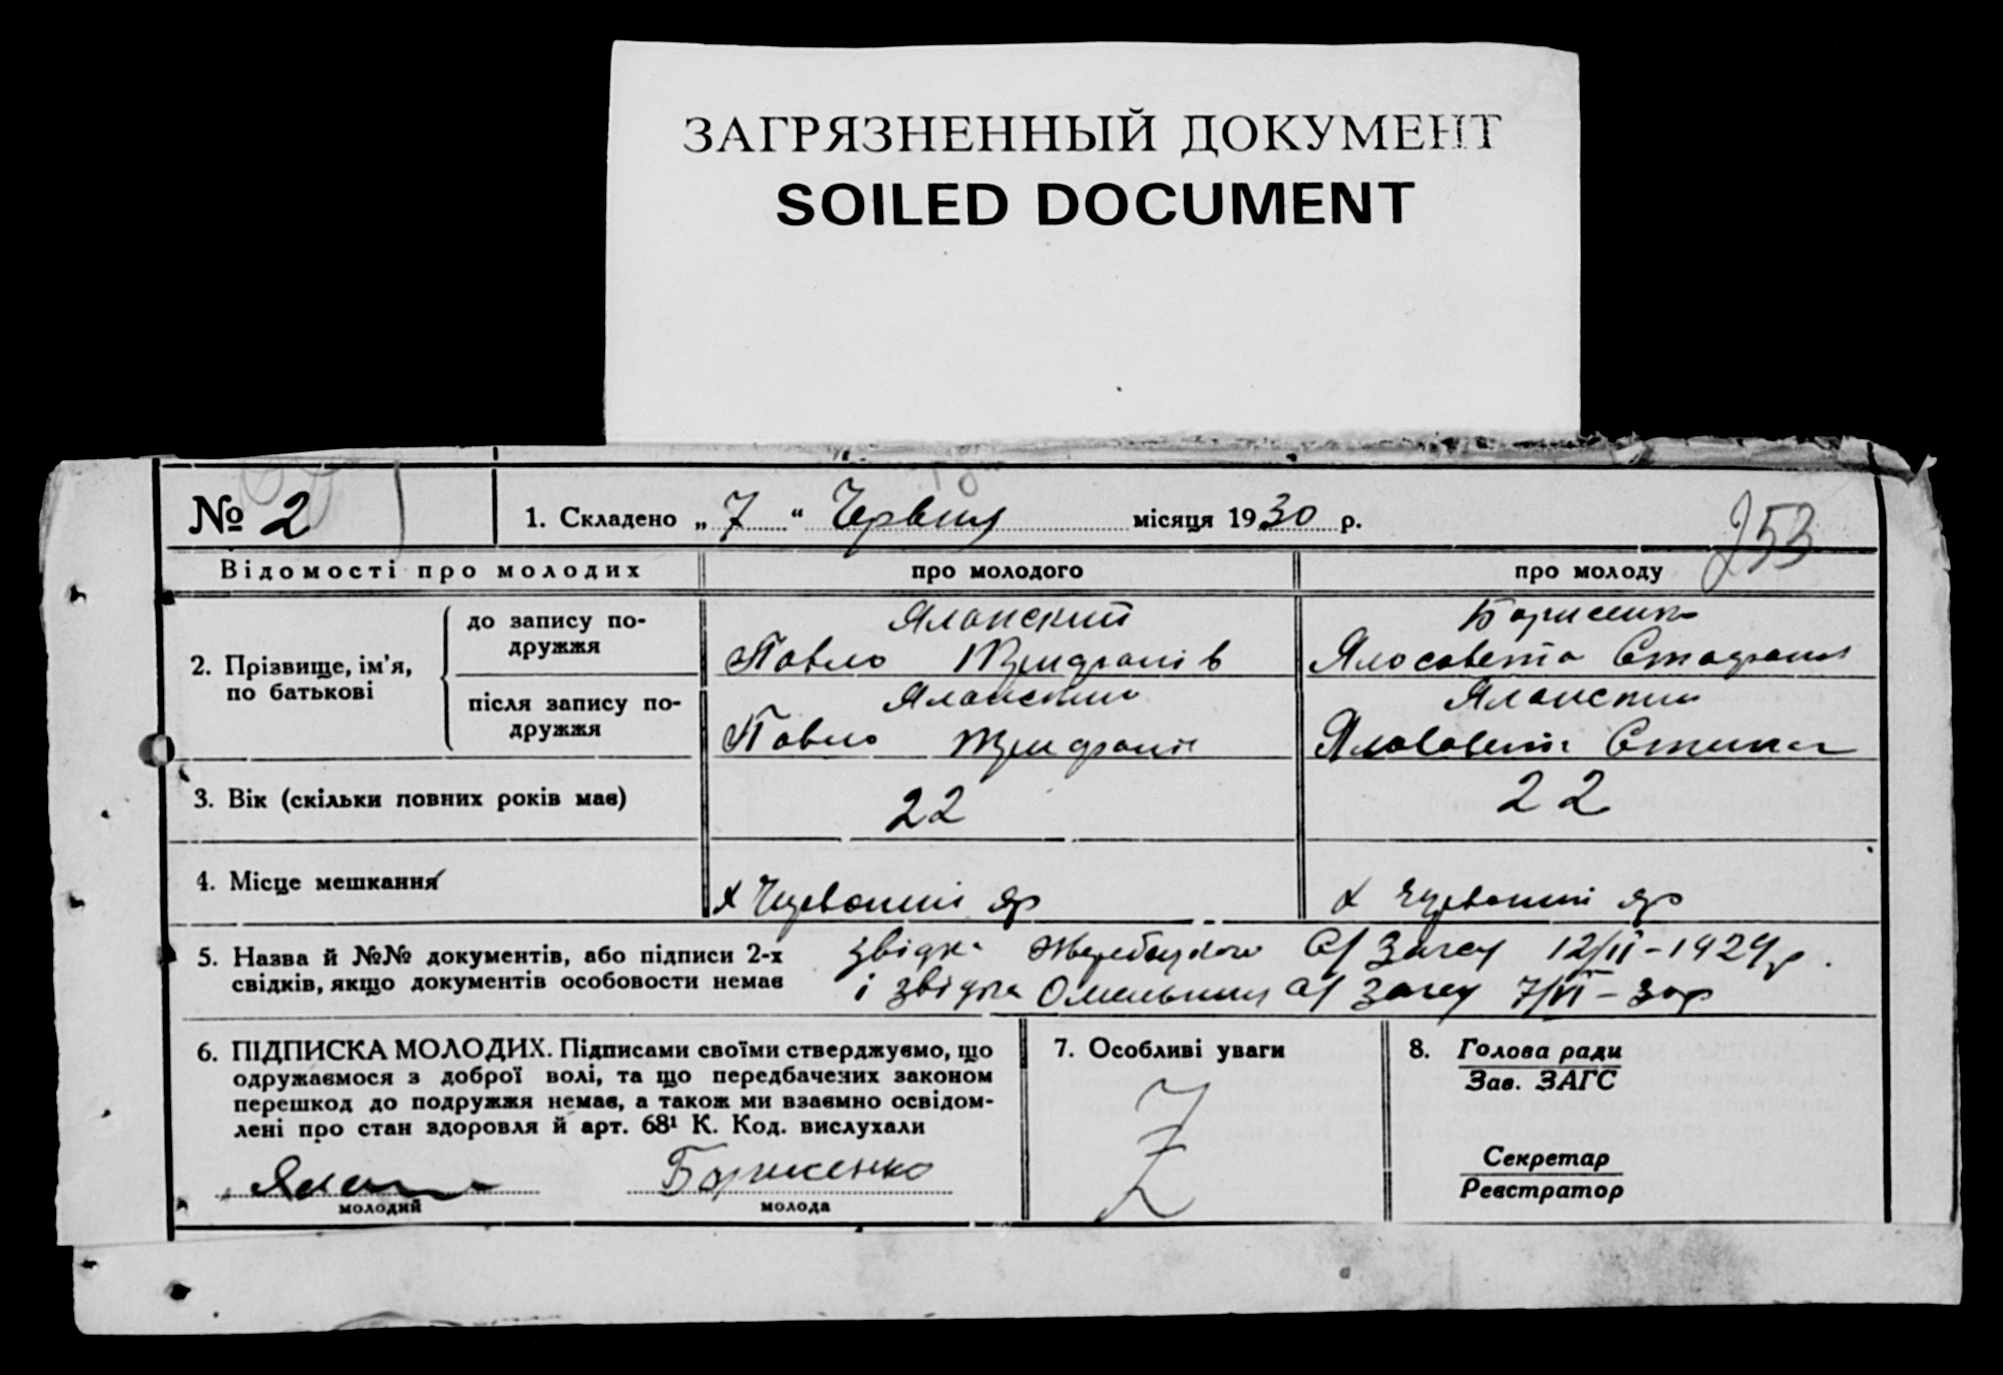 ЗАГРЯЗНЕННЫЙ ДОКУМЕНТ
SOILED DOCUMENT
№ 2
1. Складено „ 7 “ Червня місяця 1930 р.
253
Відомості про молодих
про молодого
про молоду
2. Прізвище, ім’я, по батькові
до запису по-
дружжя
Яланский
Павло
Борисенко
Ялосавета
після запису по-
дружжя
Яланский
Павло
Яланский
Ялосавета
3. Вік (скільки повних років має)
22
22
4. Місце мешкання
х Червоний яр
х Червоний яр
5. Назва й №№ документів, або підписи 2-х
свідків, якщо документів особовости немає
звідка Жеребецького С/ Загсу 12/II - 1929 р.
і звідка Омельника С/ Загсу 7/VI - 30 р
6. ПІДПИСКА МОЛОДИХ. Підписами своїми стверджуємо, що
одружаємося з доброї волі, та що передбачених законом
перешкод до подружжя немає, а також ми взаємно освідом-
лені про стан здоровля й арт. 68¹ К. Код. вислухали
Борисенко
молодий
молода
7. Особливі уваги
8. Голова ради
Зав. ЗАГС
Секретар
Реєстратор